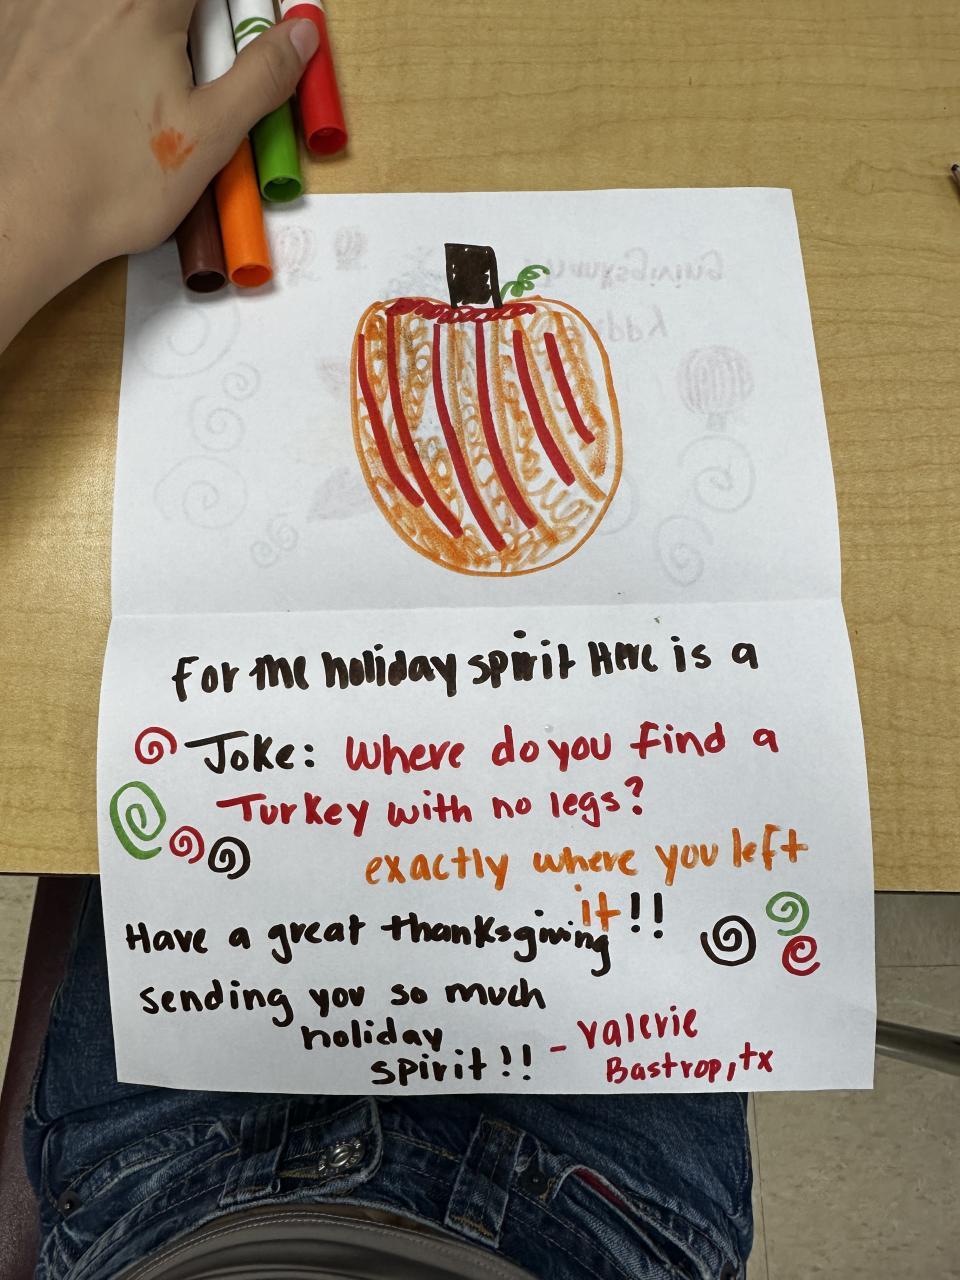 For the holiday spirit Here is a
Joke: Where do you find a
Turkey with no legs?
exactly where you left
it!!
Have a great thanksgiving
sending you so much
holiday
spirit!!
- Valerie
Bastrop, tx